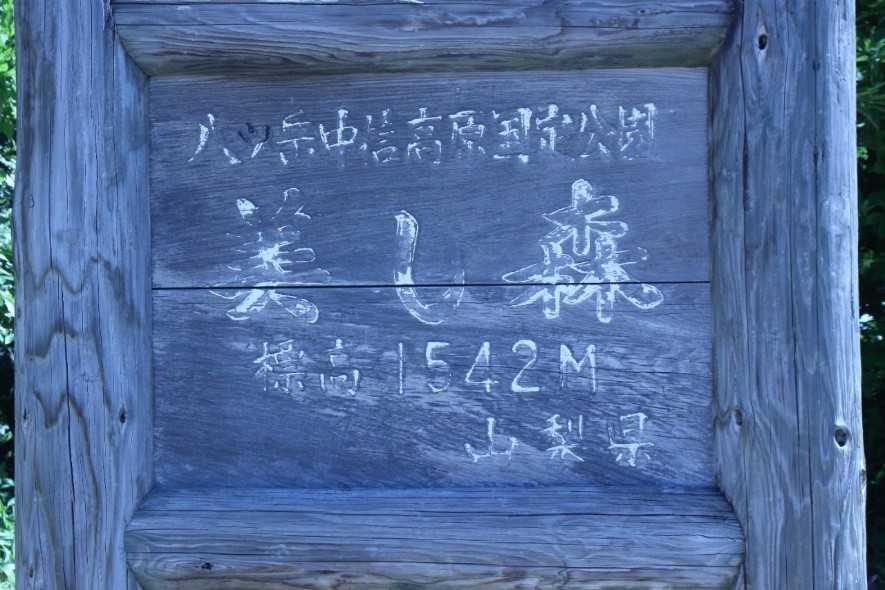 八ヶ岳中信高原国定公園
美し森
標高1542M
山梨県